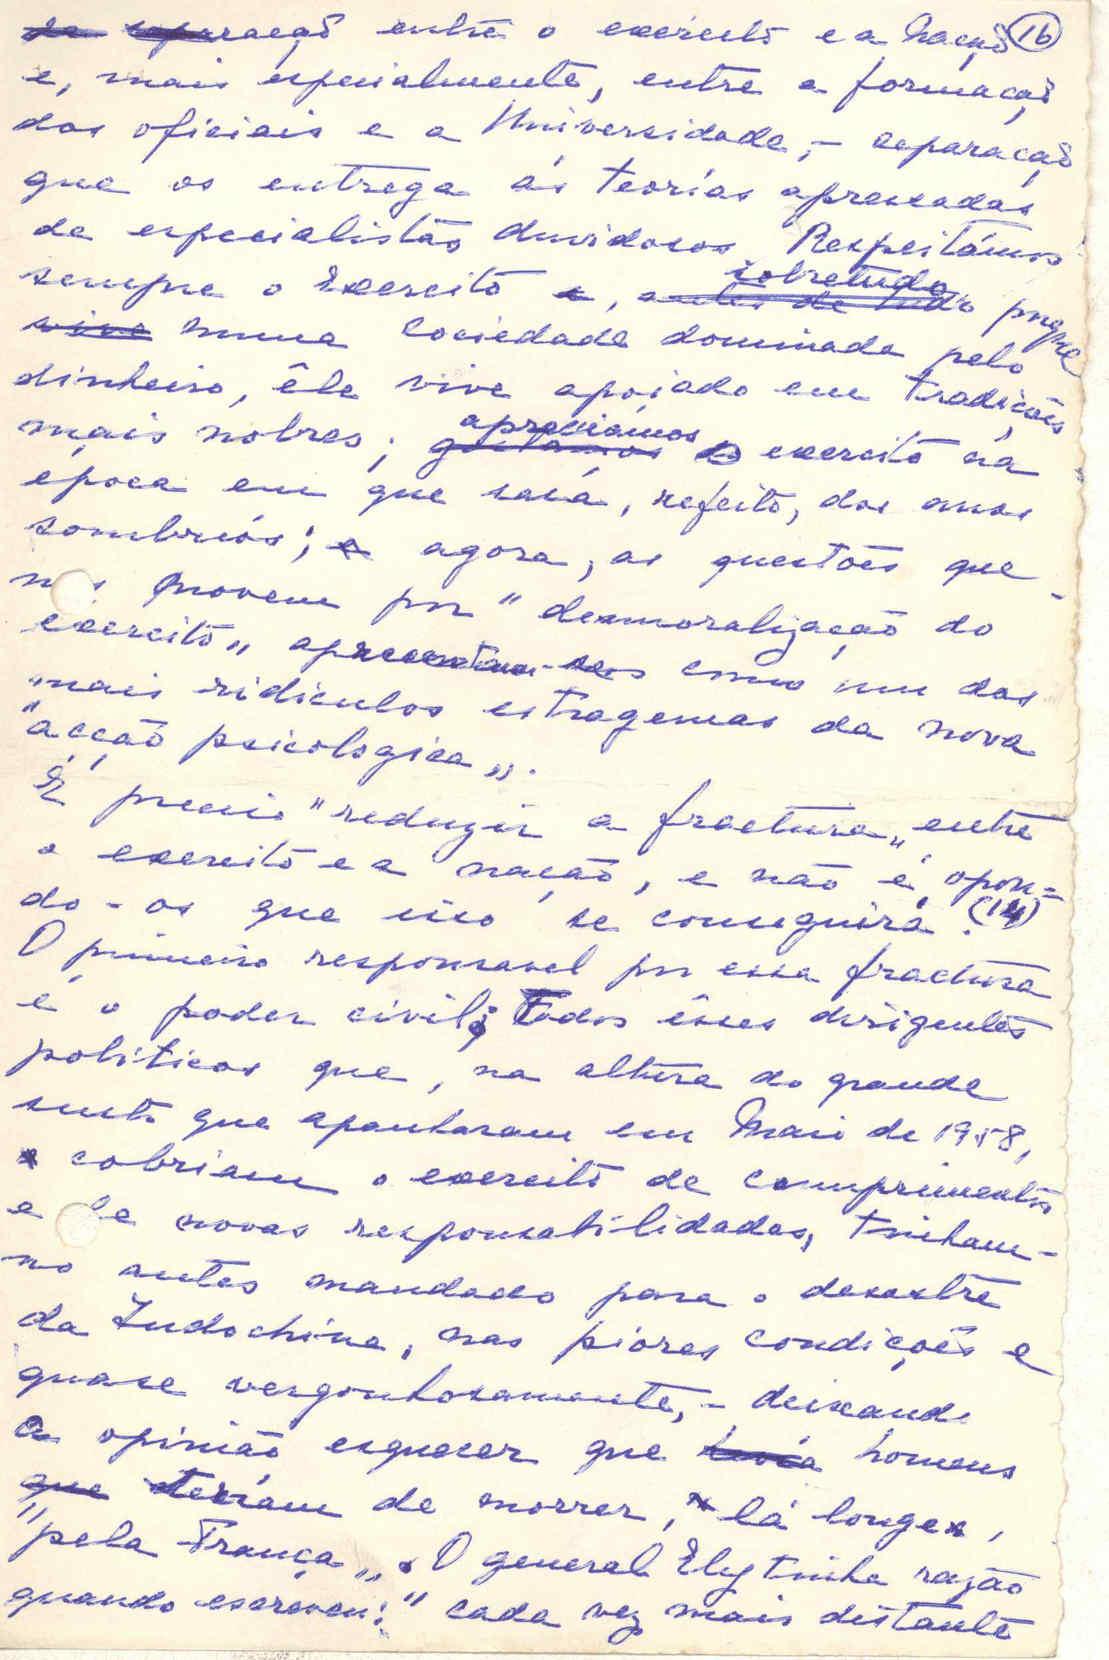 separação entre o exército e a Nação (16)
e, mais especialmente, entre a formação
dos oficiais e a Universidade, - separação
que os entrega ás teorias apressadas
de especialistas duvidosos. Respeitámos
sempre o Exercito, sobretudo porque
numa sociedade dominada pelo
dinheiro, êle vive apoiado em tradições
mais nobres; apreciámos o exercito na
época em que saía, refeito, dos anos
sombrios; agora, as questões que
nos movem por "desmoralização do
exercito„ apresentam-se como um dos
mais ridiculos estragemas da nova
"acção psicologica„.
É preciso "reduzir a fractura„ entre
o exercito e a nação, e não é opon=
do-os que isso se conseguirá. (14)
O primeiro responsavel por essa fractura
é o poder civil; Todos êsses dirigentes
politicos que, na altura do grande
susto que apanharam em Maio de 1958,
cobriam o exercito de comprimentos
e de novas responsabilidades, tinham-
no antes mandado para o desastre
da Indochina, nas piores condições e
quase vergonhosamente, - deixando
a opinião esquecer que homens
teriam de morrer, lá longe,
"pela França„. O general Ely tinha razão
quando escreveu: "cada vez mais distante